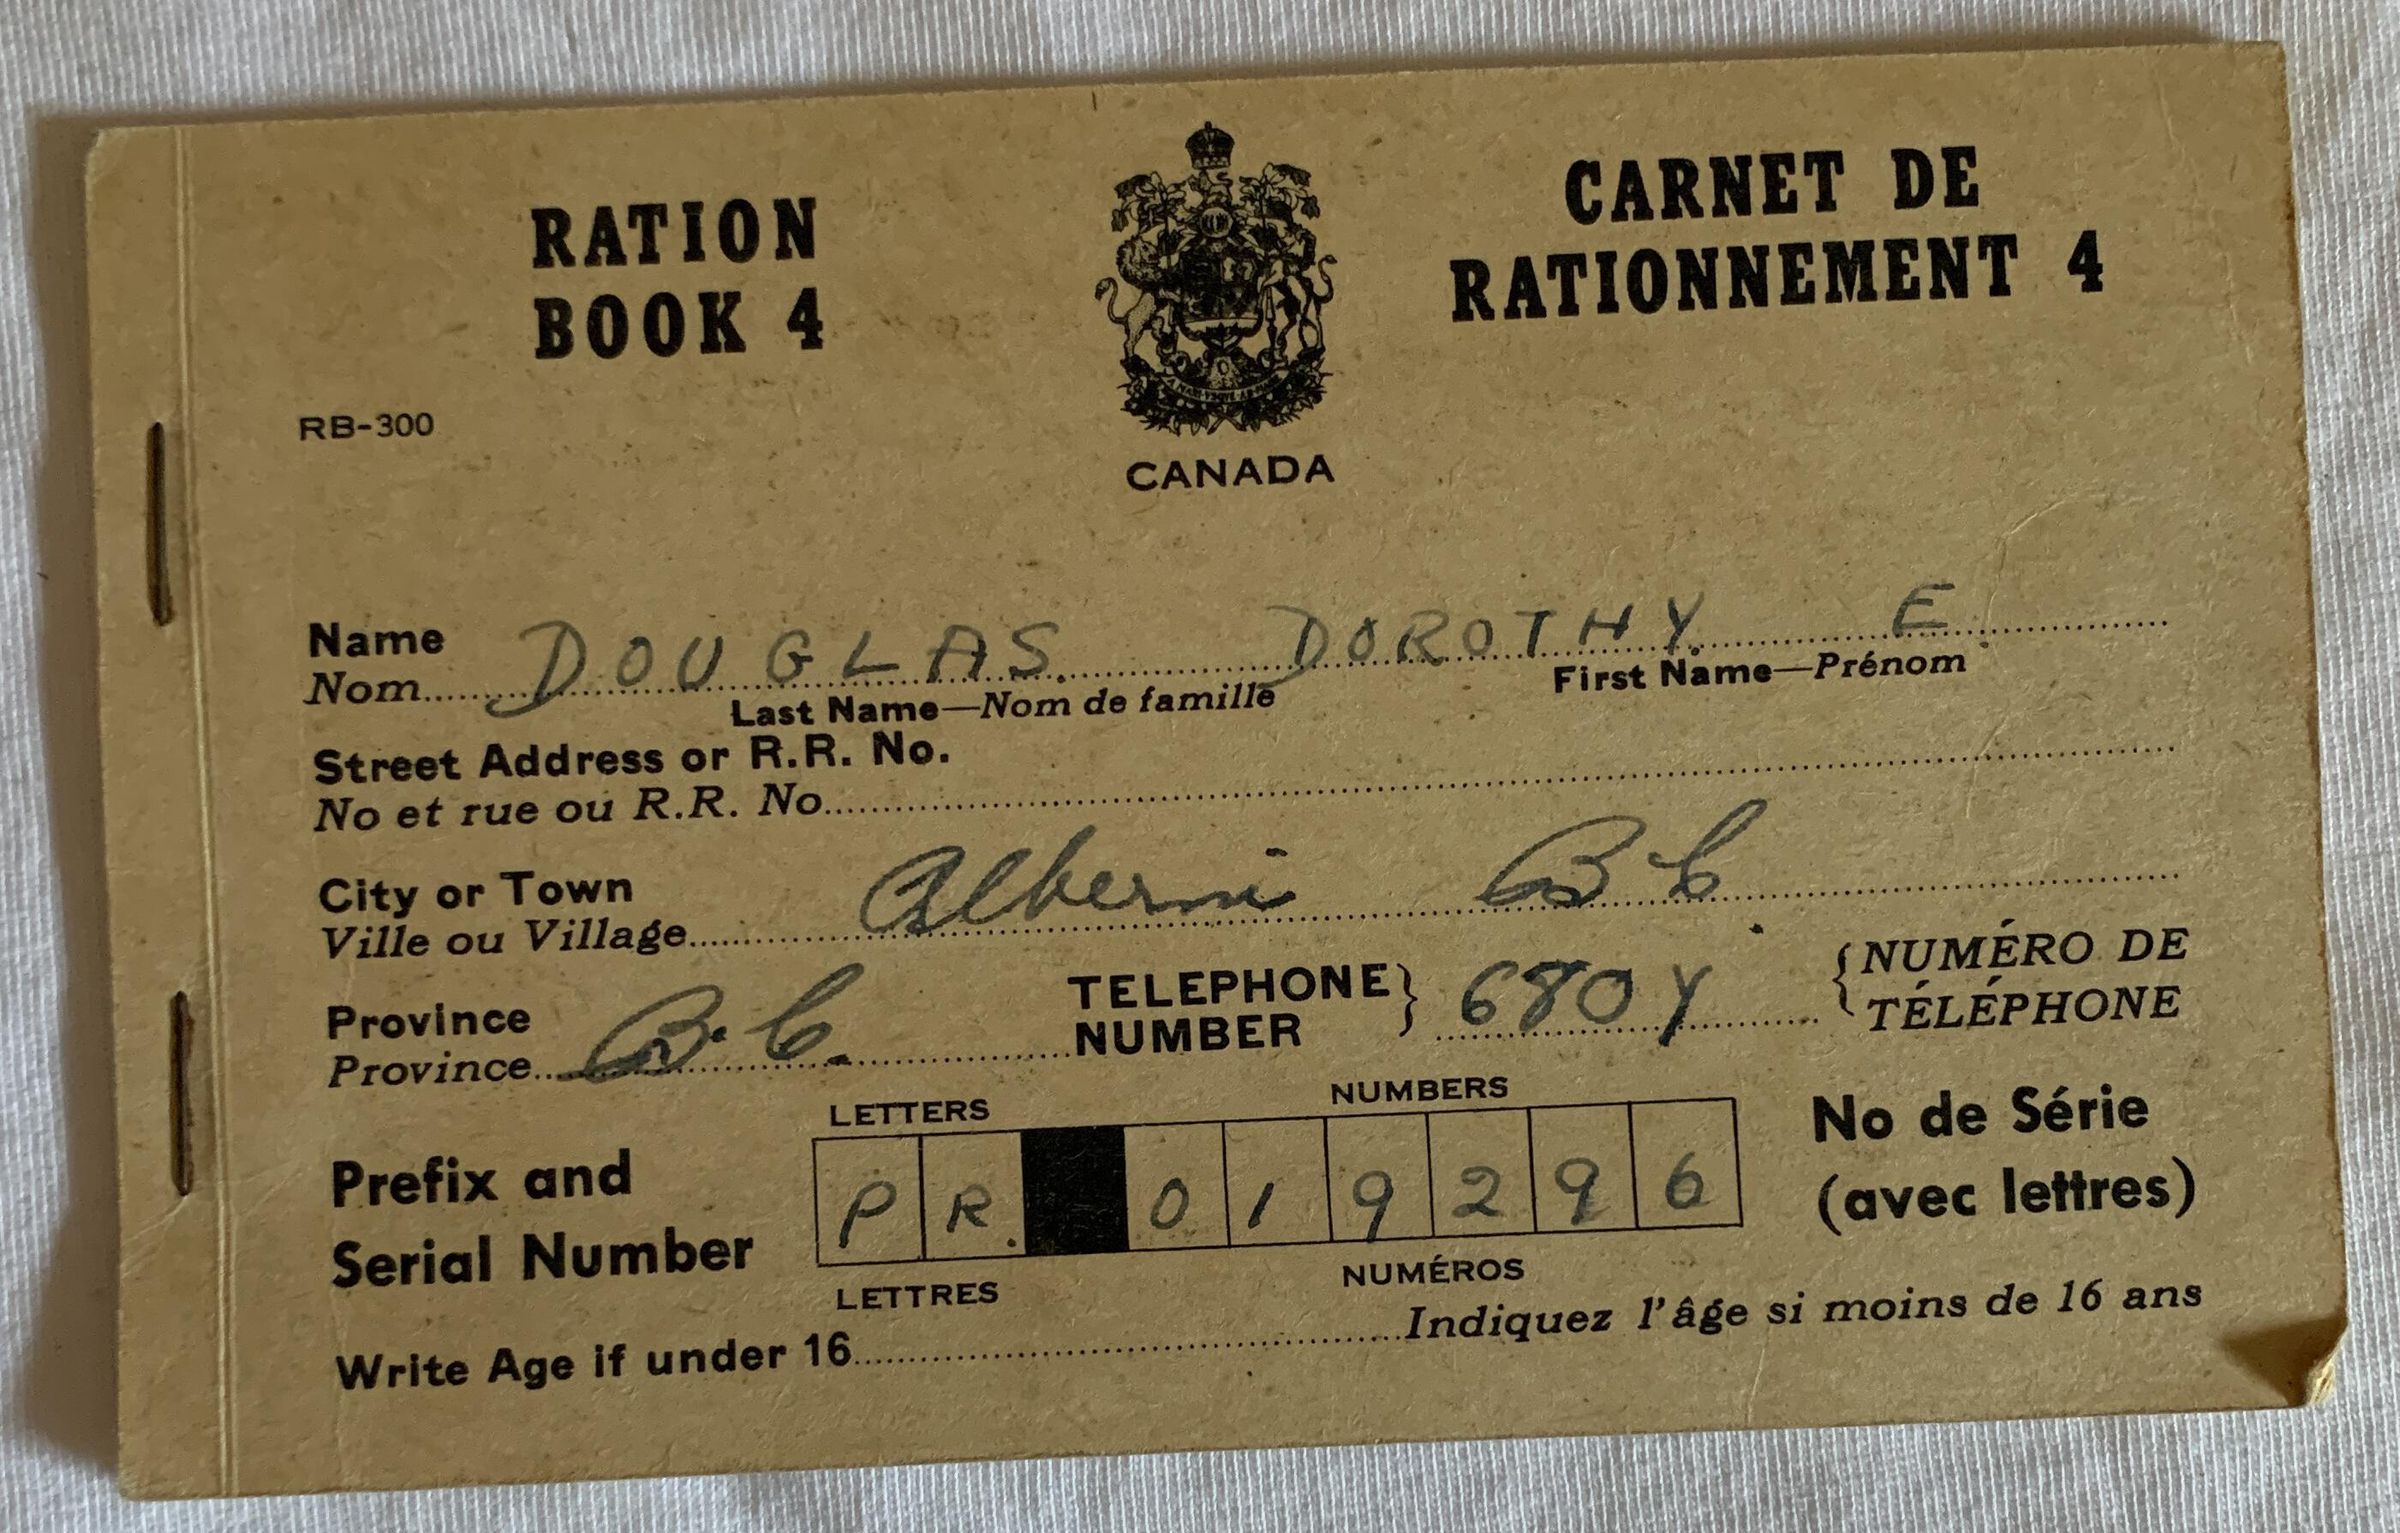 RATION
BOOK 4
CARNET DE
RATIONNEMENT 4
RB-300
CANADA
Name DOUGLAS. DOROTHY. E.
Nom
Last Name—Nom de famille First Name—Prénom
Street Address or R.R. No.
No et rue ou R.R. No
City or Town Alberni B C.
Ville ou Village
Province B.C.
Province
TELEPHONE
NUMBER } 680Y { NUMÉRO DE
TÉLÉPHONE
LETTERS NUMBERS
Prefix and
Serial Number
PR. 019296
No de Série
(avec lettres)
LETTRES NUMÉROS
Write Age if under 16 Indiquez l'âge si moins de 16 ans